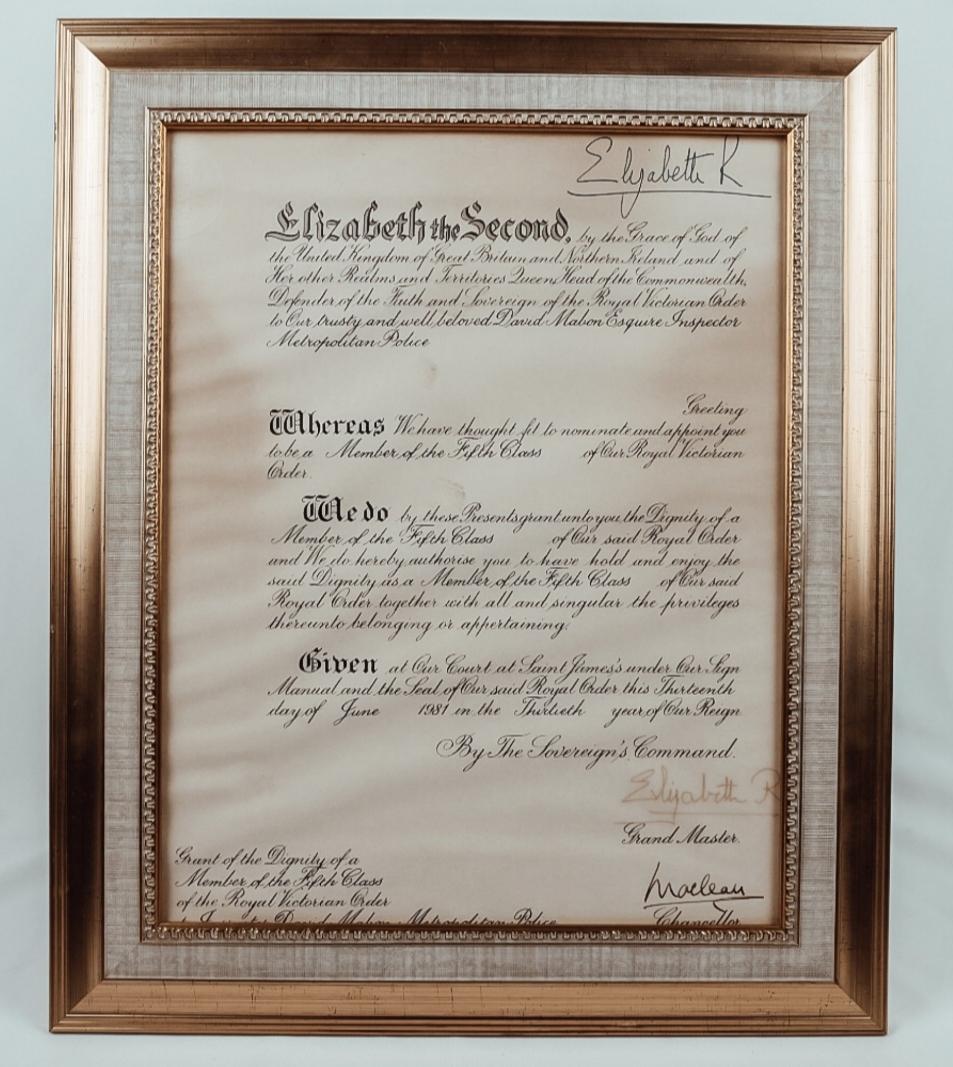 Elizabeth R
Elizabeth the Second, by the Grace of God of
the United Kingdom of Great Britain and Northern Ireland and of
Her other Realms and Territories Queen, Head of the Commonwealth,
Defender of the Faith and Sovereign of the Royal Victorian Order
to Our trusty and well beloved David Mabon Esquire Inspector
Metropolitan Police
Greeting
Whereas We have thought fit to nominate and appoint you
to be a Member of the Fifth Class of Our Royal Victorian
Order.
We do by these Presents grant unto you the Dignity of a
Member of the Fifth Class of Our said Royal Order
and We do hereby authorise you to have hold and enjoy the
said Dignity as a Member of the Fifth Class of Our said
Royal Order together with all and singular the privileges
thereunto belonging or appertaining.
Given at Our Court at Saint James's under Our Sign
Manual and the Seal of Our said Royal Order this Thirteenth
day of June 1981 in the Thirtieth year of Our Reign
By The Sovereign's Command.
Elizabeth R
Grand Master.
Grant of the Dignity of a
Member of the Fifth Class
of the Royal Victorian Order
Maclean
to Inspector David Mabon, Metropolitan Police
Chancellor